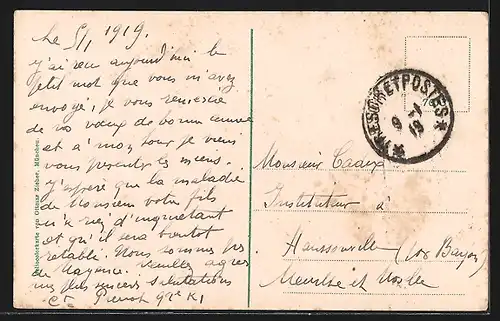 Le 5/1 1919.
j'ai reçu aujourd'hui le
petit mot que vous m'avez
envoyé, je vous remercie
de vos vœux de bonne année
et à mon tour je viens
vous présenter les miens.
J'espère que la maladie
de Monsieur votre fils
n'a rien d'inquiétant
et qu'il sera bientôt
rétabli. Nous sommes près
de Mayence. Veuillez agréer
mes plus sincères salutations
Pierrot
TRESOR ET POSTES
9 - 1
19
Monsieur
Instituteur à
Haussonville (par Bayon)
Meurthe et Moselle
Heliocolorkarte von Ottmar Zieher, München.